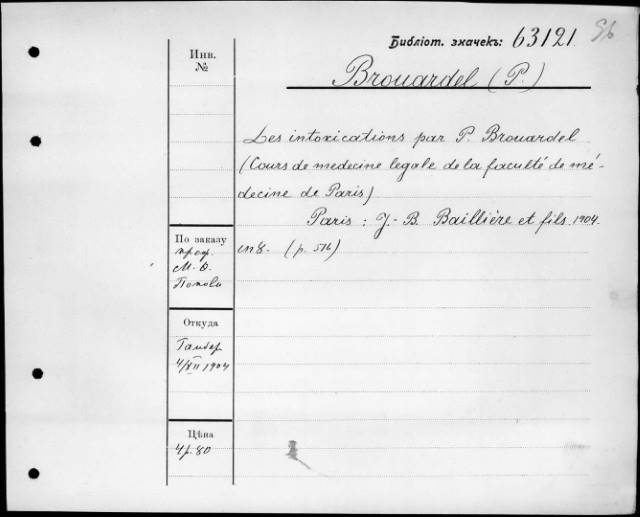 Библіот. значекъ: 63121
Инв.
№
Brouardel (P.)
Les intoxications par P. Brouardel
(Cours de medecine legale de la faculté de mé-
decine de Paris)
Paris : J.-B. Baillière et fils. 1904.
in 8. (p. 516)
По заказу
проф.
М. Ѳ.
Попова
Откуда
4/XII 1904
Цѣна
4 р. 80